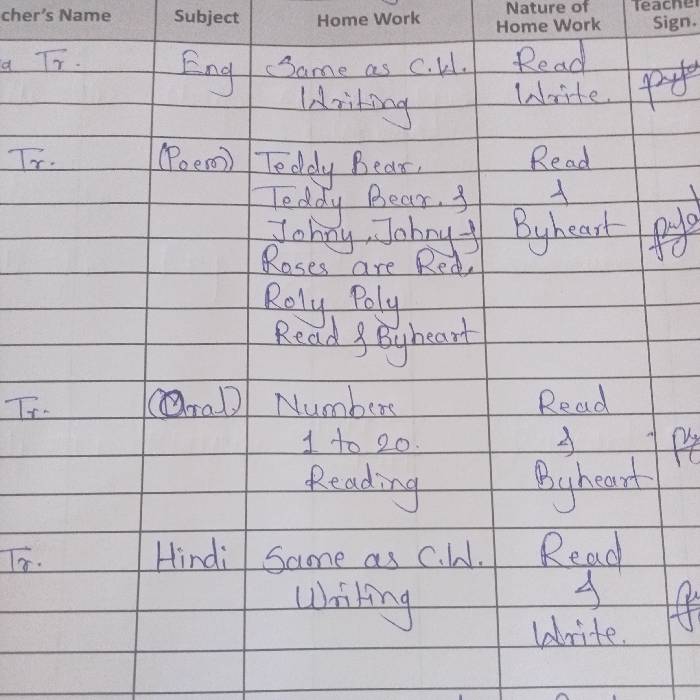 cher's Name Subject Home Work Nature of Home Work Teacher Sign.
a Tr. Eng Same as C.W. Read
Writing Write.
Tr. (Poem) Teddy Bear. Read
Teddy Bear. & &
Johny, Johny & Byheart
Roses are Red.
Roly Poly
Read & Byheart
Tr. (Oral) Numbers Read
1 to 20. &
Reading Byheart
Tr. Hindi Same as C.W. Read
Writing &
Write.